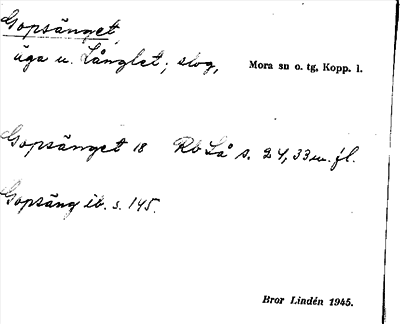 Gopsänget,
äga u. Långlet; skog, Mora sn o. tg, Kopp. l.
Gopsänget 18 Rb Lå s. 24, 33 m. fl.
Gopsäng ib. s. 145.
Bror Lindén 1945.